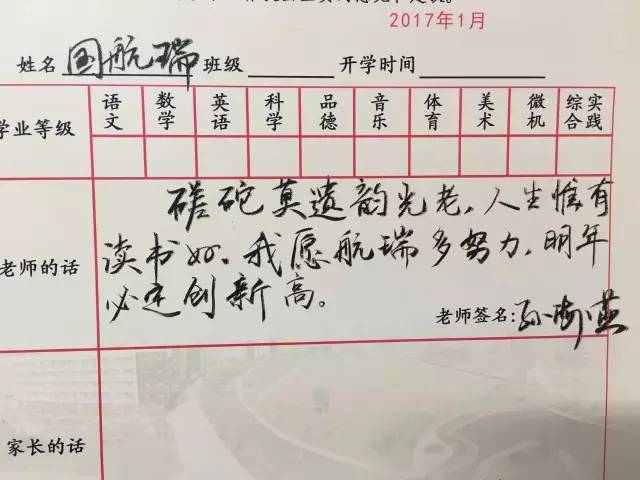 2017年1月
姓名 国航瑞 班级 开学时间
学业等级 语文 数学 英语 科学 品德 音乐 体育 美术 微机 综合实践
磋砣莫遗韵光老,人生惟有
老师的话 读书好.我愿航瑞多努力,明年
必定创新高。
老师签名:
家长的话